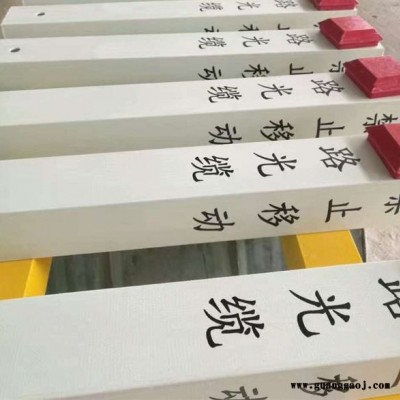 路光缆
路光缆
禁止移动
路光缆
禁止移动
路光缆
禁止移动
路光缆
www.guanggaoj.com